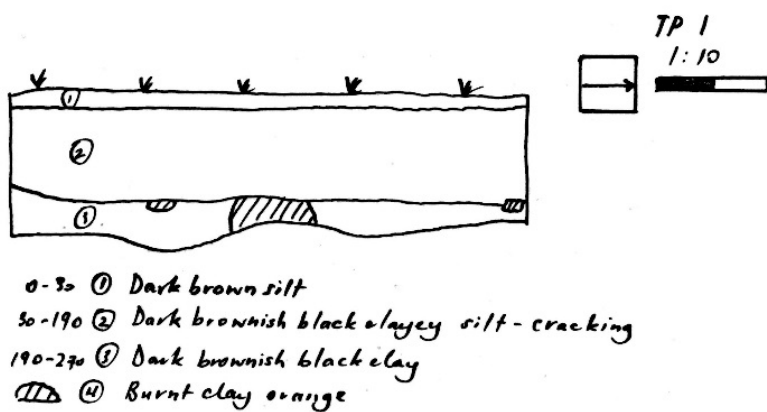 TP 1
1:10
1
2
3
0-30 ① Dark brown silt
30-190 ② Dark brownish black clayey silt - cracking
190-270 ③ Dark brownish black clay
④ Burnt clay orange